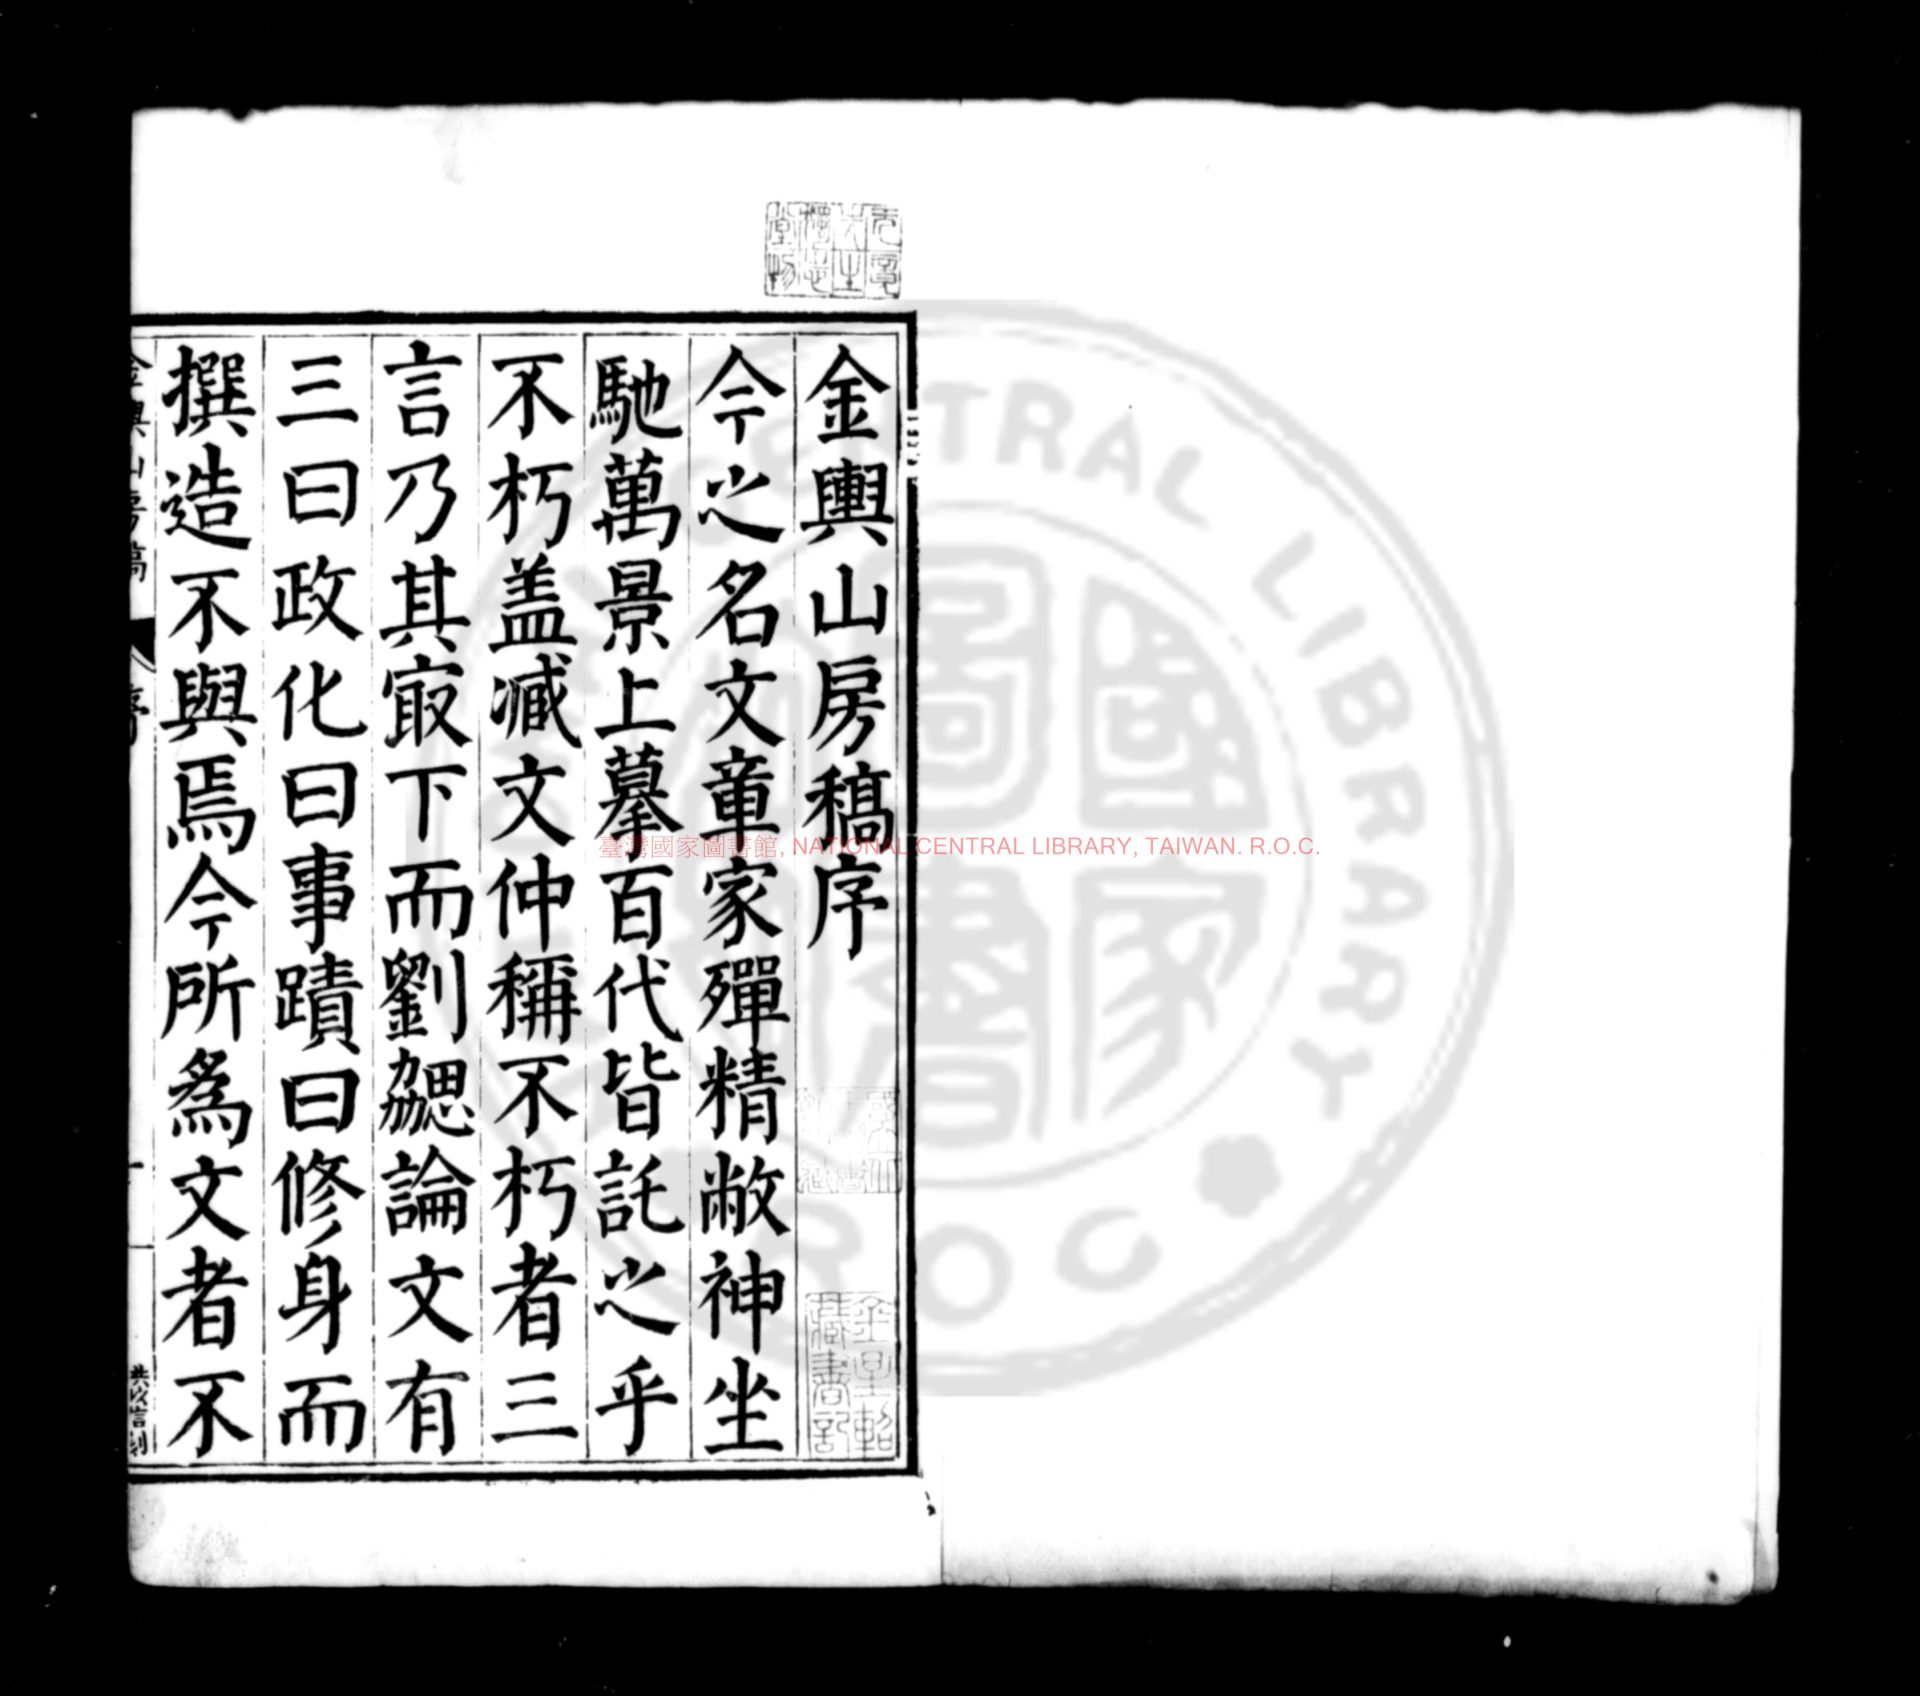 金輿山房稿序
今之名文章家殫精敝神坐
馳萬景上摹百代皆託之乎
不朽盖臧文仲稱不朽者三
言乃其㝡下而劉勰論文有
三曰政化曰事蹟曰修身而
撰造不與焉今所為文者不
金輿山房稿 序 一
臺灣國家圖書館, NATIONAL CENTRAL LIBRARY, TAIWAN. R.O.C.
CENTRAL LIBRARY
R O C
國家圖書
藏書記